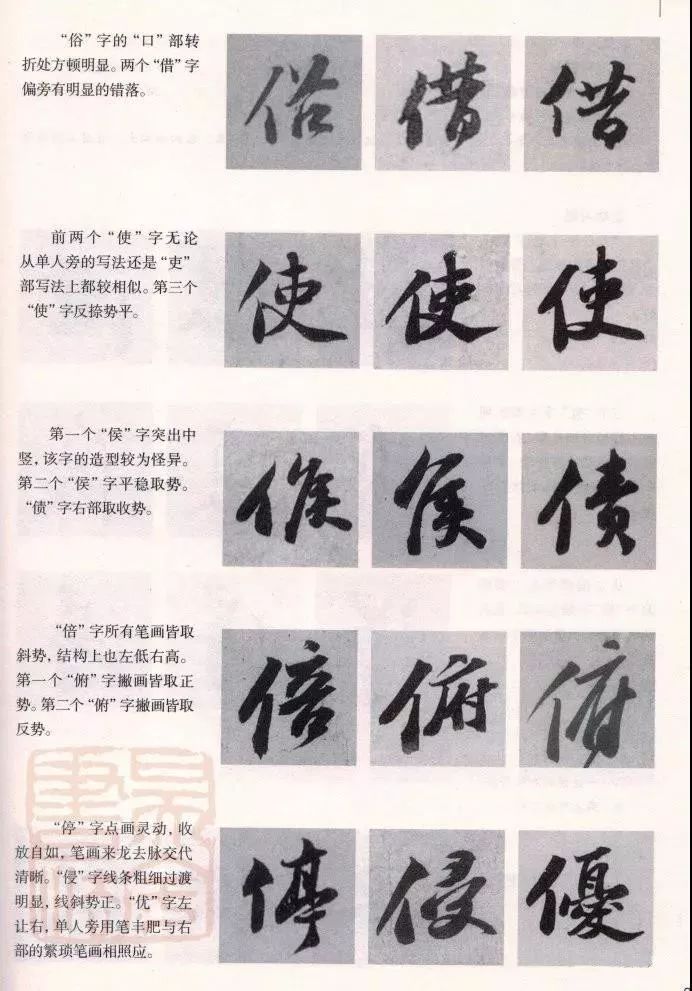 “俗”字的“口”部转
折处方顿明显。两个“借”字
偏旁有明显的错落。
俗 借 借
前两个“使”字无论
从单人旁的写法还是“吏”
部写法上都较相似。第三个
“使”字反捺势平。
使 使 使
第一个“侯”字突出中
竖，该字的造型较为怪异。
第二个“侯”字平稳取势。
“债”字右部取收势。
侯 侯 债
“倍”字所有笔画皆取
斜势，结构上也左低右高。
第一个“俯”字撇画皆取正
势。第二个“俯”字撇画皆取
反势。
倍 俯 俯
“停”字点画灵动，收
放自如，笔画来龙去脉交代
清晰。“侵”字线条粗细过渡
明显，线斜势正。“优”字左
让右，单人旁用笔丰肥与右
部的繁琐笔画相照应。
停 侵 優